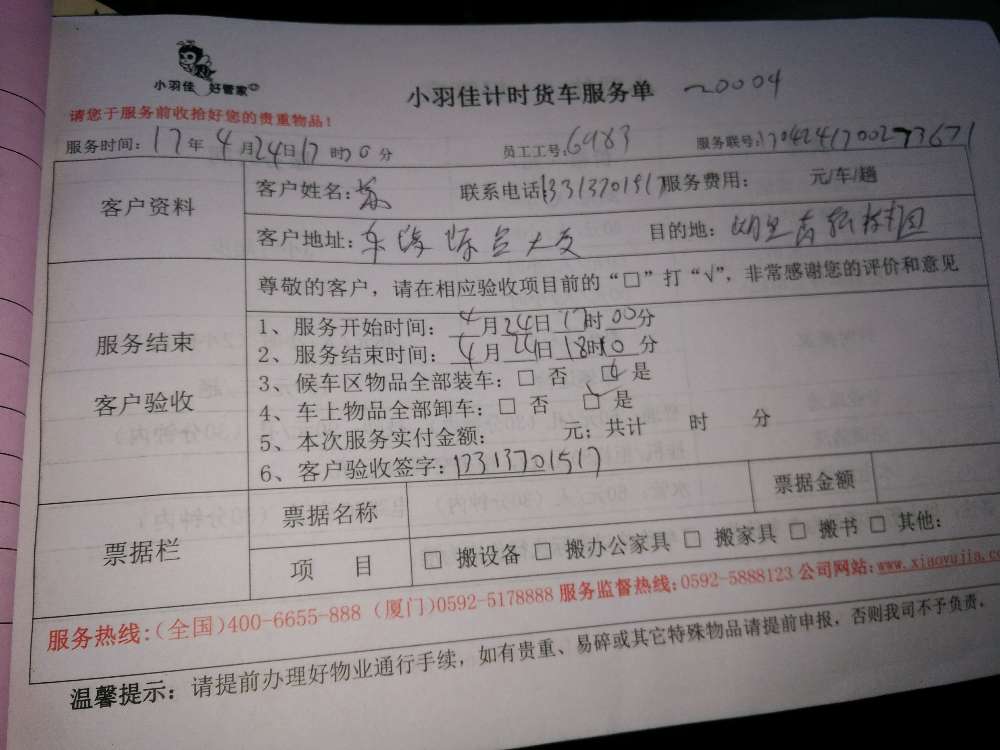 小羽佳 好管家
小羽佳计时货车服务单 ~20004
请您于服务前收拾好您的贵重物品!
服务时间:17年4月24日17时 分 员工工号:6983 服务联号:1704241700273671
客户资料
客户姓名: 联系电话 服务费用: 元/车/趟
客户地址: 大 目的地:
服务结束
客户验收
尊敬的客户,请在相应验收项目前的“□”打“√”,非常感谢您的评价和意见
1、服务开始时间:4月24日17时00分
2、服务结束时间:4月24日18时10分
3、候车区物品全部装车:□ 否 □ 是
4、车上物品全部卸车:□ 否 □ 是
5、本次服务实付金额: 元;共计 时 分
6、客户验收签字:
票据栏
票据名称 票据金额
项 目 □ 搬设备 □ 搬办公家具 □ 搬家具 □ 搬书 □ 其他:
服务热线:(全国)400-6655-888 (厦门)0592-5178888 服务监督热线:0592-5888123 公司网站:www.xiaoyujia.co
温馨提示:请提前办理好物业通行手续,如有贵重、易碎或其它特殊物品请提前申报,否则我司不予负责.